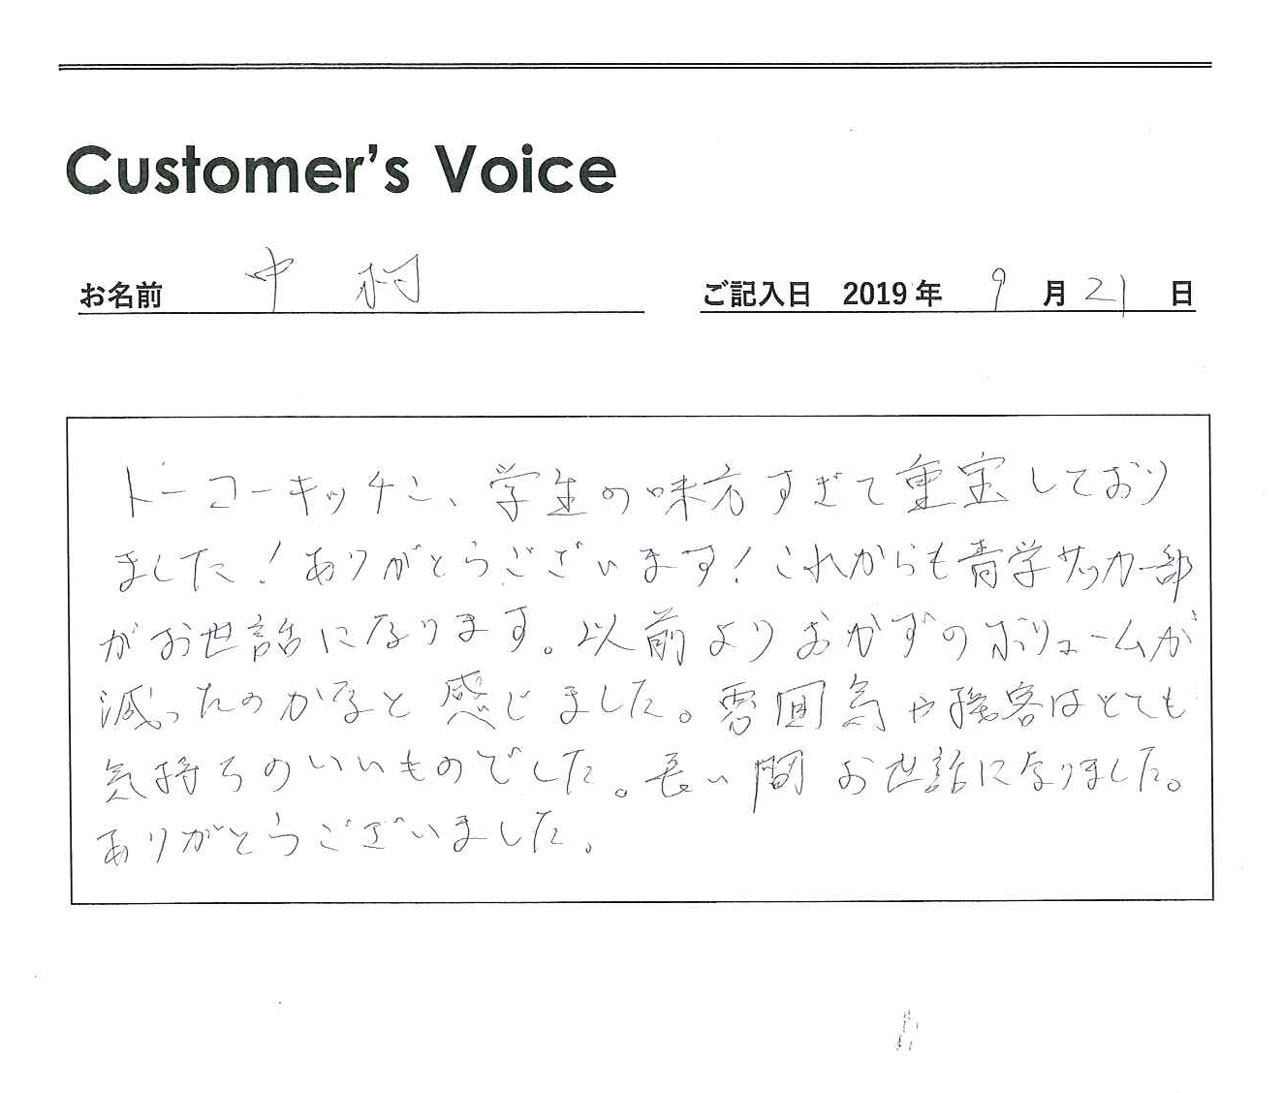 Customer's Voice
お名前 中村 ご記入日 2019年 9月21日
トーコーキッチン、学生の味方すぎて重宝しており
ました！ありがとうございます！これからも青学サッカー部
がお世話になります。以前よりおかずのボリュームが
減ったのかなと感じました。雰囲気や接客はとても
気持ちのいいものでした。長い間お世話になりました。
ありがとうございました。